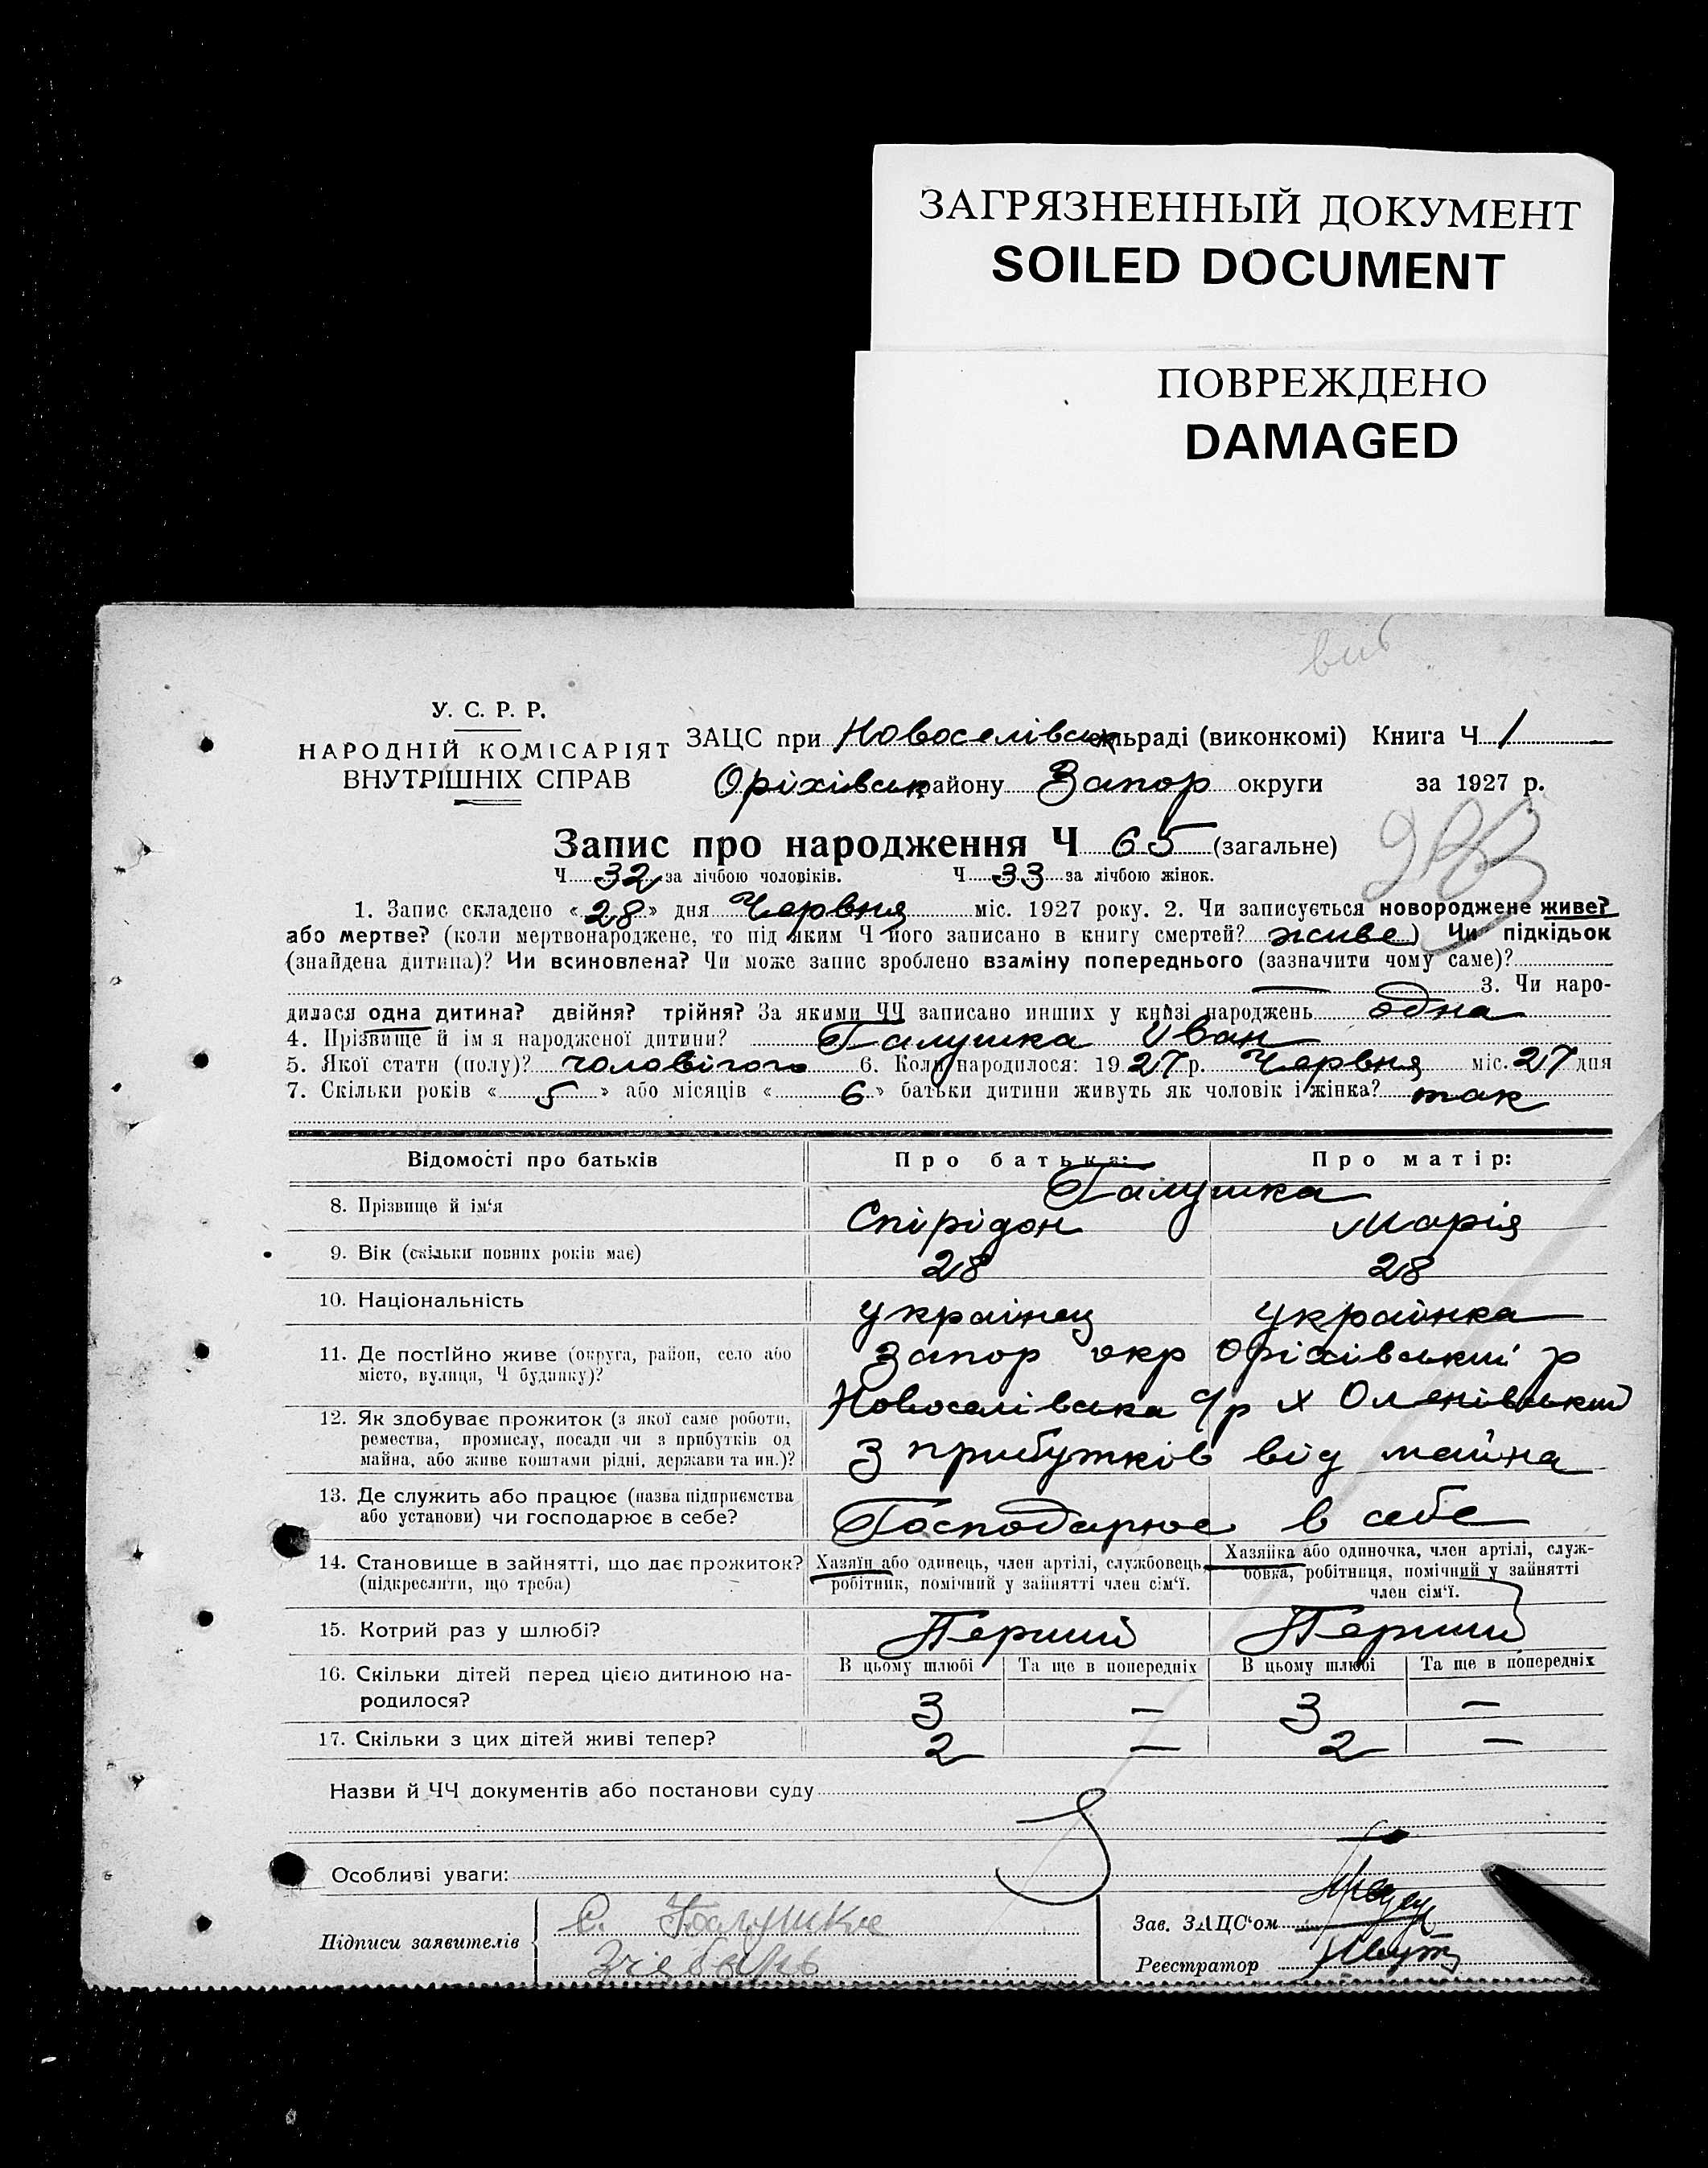 ЗАГРЯЗНЕННЫЙ ДОКУМЕНТ
SOILED DOCUMENT
ПОВРЕЖДЕНО
DAMAGED
У. С. Р. Р.
НАРОДНІЙ КОМІСАРІЯТ
ВНУТРІШНІХ СПРАВ
ЗАЦС при Новоселівськ сільраді (виконкомі) Книга Ч 1
Оріхівськ району Запор округи за 1927 р.
Запис про народження Ч 65 (загальне)
Ч 32 за лічбою чоловіків. Ч 33 за лічбою жінок.
1. Запис складено «28» дня Червня міс. 1927 року. 2. Чи записується новороджене живе?
або мертве? (коли мертвонароджене, то під яким Ч його записано в книгу смертей? живе) Чи підкідьок
(знайдена дитина)? Чи всиновлена? Чи може запис зроблено взаміну попереднього (зазначити чому саме)?
— 3. Чи наро-
дилася одна дитина? двійня? трійня? За якими ЧЧ записано инших у книзі народжень одна
4. Прізвище й ім'я народженої дитини? Галушка Иван
5. Якої стати (полу)? чоловічого 6. Коли народилося: 1927 р. Червня міс. 27 дня
7. Скільки років «5» або місяців «6» батьки дитини живуть як чоловік і жінка? так
Відомості про батьків Про батька: Про матір:
Галушка
8. Прізвище й ім'я Спірідон Марія
9. Вік (скільки повних років має) 28 28
10. Національність українец українка
11. Де постійно живе (округа, район, село або місто, вулиця, Ч будинку)? Запор окр Оріхівський р
Новоселівська с/р х Оленівський
12. Як здобуває прожиток (з якої саме роботи,
ремества, промислу, посади чи з прибутків од
майна, або живе коштами рідні, держави та ин.)? З прибутків від майна
13. Де служить або працює (назва підприємства
або установи) чи господарює в себе? Господарює в себе
14. Становище в зайнятті, що дає прожиток? Хазяїн або одинець, член артілі, службовець, Хазяйка або одиночка, член артілі, служ-
(підкреслити, що треба) робітник, помічний у зайнятті член сім'ї. бовка, робітниця, помічний у зайнятті
член сім'ї.
15. Котрий раз у шлюбі? Перший Перший
В цьому шлюбі Та ще в попередніх В цьому шлюбі Та ще в попередніх
16. Скільки дітей перед цією дитиною на-
родилося? 3 — 3 —
17. Скільки з цих дітей живі тепер? 2 — 2 —
Назви й ЧЧ документів або постанови суду
Особливі уваги:
Підписи заявителів С. Галушка
Зав. ЗАЦС'ом
Реєстратор